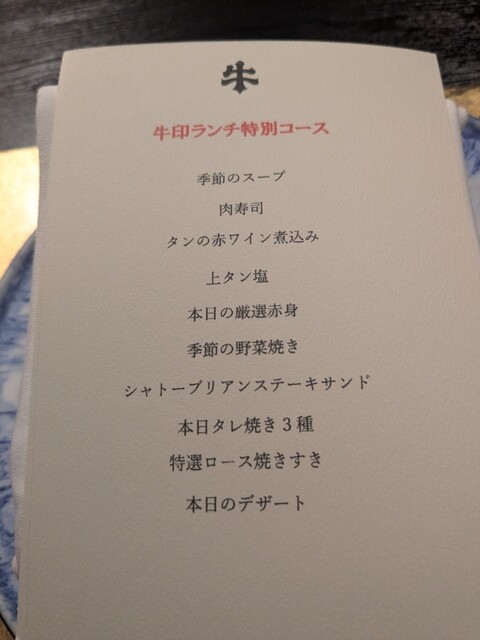 牛
牛印ランチ特別コース
季節のスープ
肉寿司
タンの赤ワイン煮込み
上タン塩
本日の厳選赤身
季節の野菜焼き
シャトーブリアンステーキサンド
本日タレ焼き3種
特選ロース焼きすき
本日のデザート